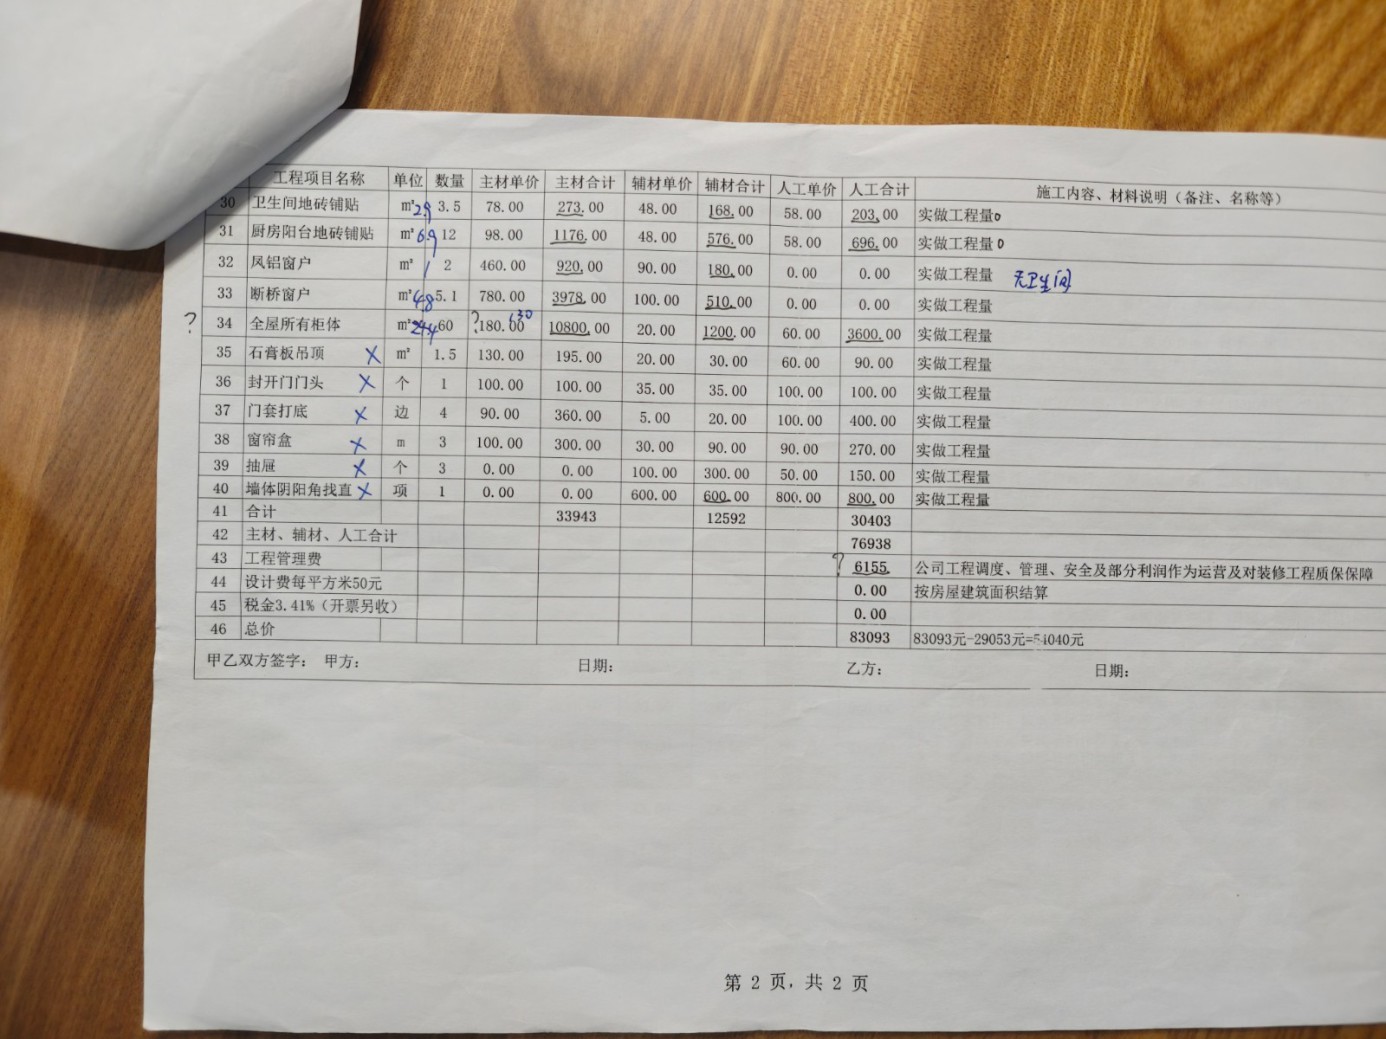 工程项目名称 单位 数量 主材单价 主材合计 辅材单价 辅材合计 人工单价 人工合计 施工内容、材料说明（备注、名称等）
30 卫生间地砖铺贴 m² 2.9 3.5 78.00 273.00 48.00 168.00 58.00 203.00 实做工程量
31 厨房阳台地砖铺贴 m² 6.9 12 98.00 1176.00 48.00 576.00 58.00 696.00 实做工程量
32 凤铝窗户 m² 1 2 460.00 920.00 90.00 180.00 0.00 0.00 实做工程量 无卫生间
33 断桥窗户 m² 4.8 5.1 780.00 3978.00 100.00 510.00 0.00 0.00 实做工程量
? 34 全屋所有柜体 m² 24.4 60 ? 180.00 630 10800.00 20.00 1200.00 60.00 3600.00 实做工程量
35 石膏板吊顶 × m² 1.5 130.00 195.00 20.00 30.00 60.00 90.00 实做工程量
36 封开门门头 × 个 1 100.00 100.00 35.00 35.00 100.00 100.00 实做工程量
37 门套打底 × 边 4 90.00 360.00 5.00 20.00 100.00 400.00 实做工程量
38 窗帘盒 × m 3 100.00 300.00 30.00 90.00 90.00 270.00 实做工程量
39 抽屉 × 个 3 0.00 0.00 100.00 300.00 50.00 150.00 实做工程量
40 墙体阴阳角找直 × 项 1 0.00 0.00 600.00 600.00 800.00 800.00 实做工程量
41 合计 33943 12592 30403
42 主材、辅材、人工合计 76938
43 工程管理费 ? 6155 公司工程调度、管理、安全及部分利润作为运营及对装修工程质保保障
44 设计费每平方米50元 0.00 按房屋建筑面积结算
45 税金3.41%（开票另收） 0.00
46 总价 83093 83093元-29053元=54040元
甲乙双方签字： 甲方： 日期： 乙方： 日期：
第 2 页，共 2 页